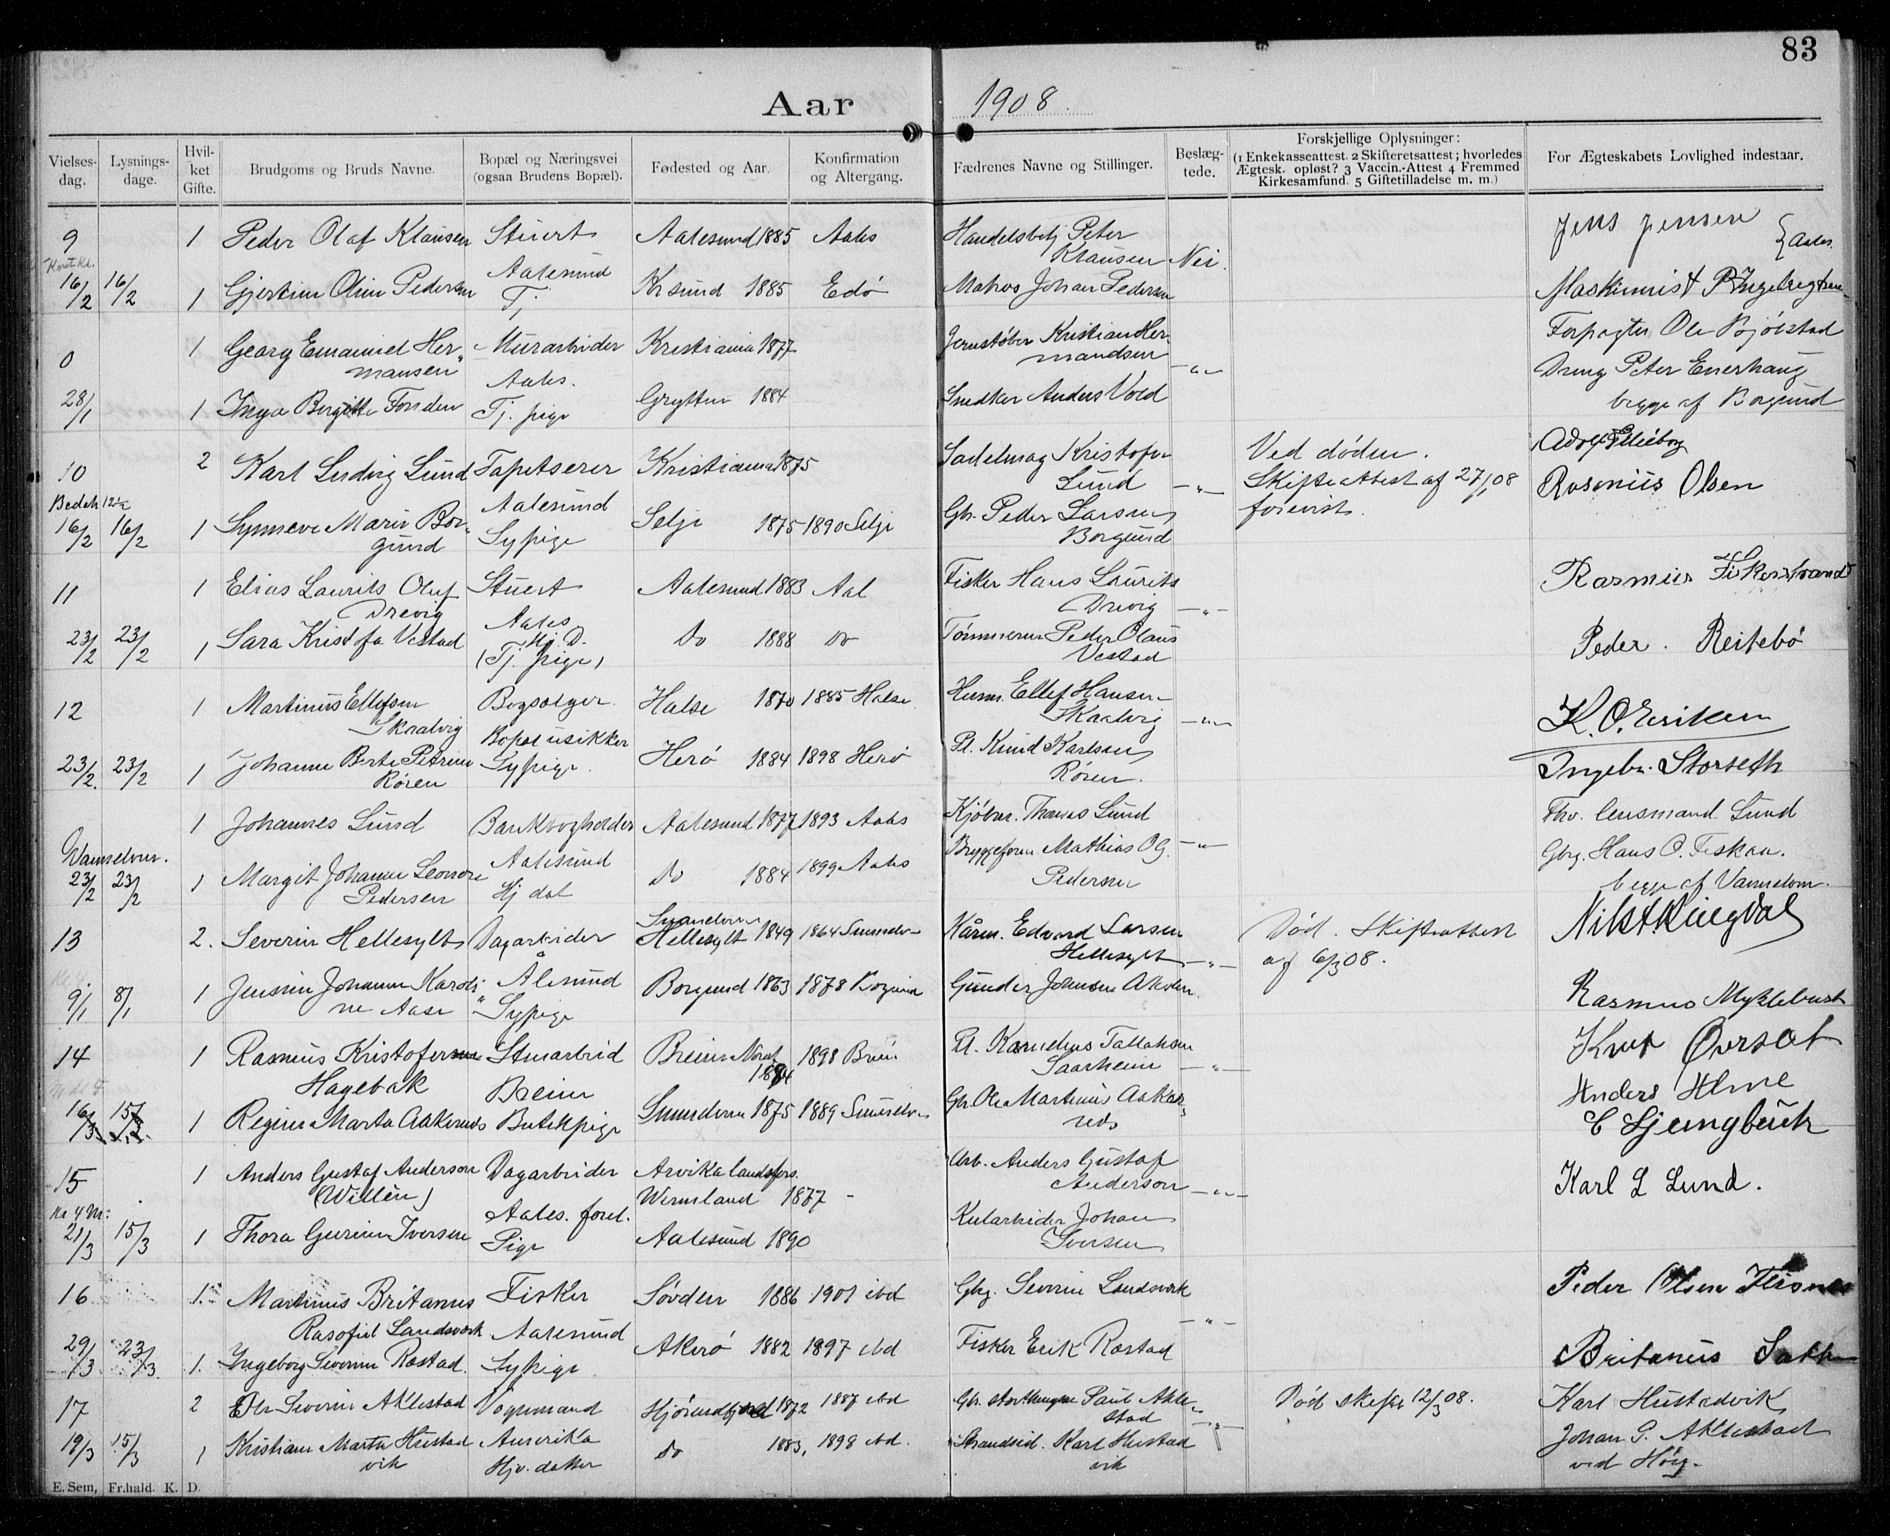 83
Aar 1908.
Vielses-dag. Lysnings-dage. Hvilket Gifte. Brudgoms og Bruds Navne. Bopæl og Næringsvei (ogsaa Brudens Bopæl). Fødested og Aar. Konfirmation og Altergang. Fædrenes Navne og Stillinger. Beslæg-tede. Forskjellige Oplysninger: (1 Enkekasseattest. 2 Skifteretsattest; hvorledes Ægtesk. opløst? 3 Vaccin.-Attest 4 Fremmed Kirkesamfund. 5 Giftetilladelse m. m.) For Ægteskabets Lovlighed indestaar.
9 1 Peder Olaf Klausen Stuert Aalesund 1885 Aales Handelsbetj Peter Jens Jensen
Aalesund Klausen Nei. Aales.
16/2 16/2 1 Gjertine Oline Pedersen Tj Krsund 1885 Edø Matros Johan Pedersen Maskinist P Ingebregtsen
0 1 Georg Emanuel Her- Murarbeider Kristiania 1877 Jernstøber Kristian Her- Forpagter Ole Bjølstad
mansen Aales. mandsen -"- Dreng Peter Enerhaug
28/1 1 Inga Bergitte Fonden Tj. pige Grytten 1884 Snedker Anders Vold begge af Borgund
10 2 Karl Ludvig Lund Tapetserer Kristiania 1875 Sadelmag Kristofer Ved døden. Adolf Ellieborg
Aalesund Lund -"- Skifteattest af 27/1 08 Rasmus Olsen
16/2 16/2 1 Synneve Marie Bor- Sypige Selje 1875 1890 Selje Gbr. Peder Larsen forevist.
gund Borgund
11 1 Elias Laurits Oluf Stuert Aalesund 1883 Aal Fisker Hans Laurits Rasmus Fiskerstrand
Drevig Aales Drevig -"-
23/2 23/2 1 Sara Kristofa Vestad Hj. D. (Tj. pige) Do 1888 Do Tømmerm Peder Olaus Peder Reitebø
Vestad
12 1 Martinus Ellefsen Bogsælger. Halse 1870 1885 Halse Husm. Ellef Hansen K. O. Eriksen
Skaalvig Bopæl usikker Skaalvig -"-
23/2. 23/2 1 Johanne Berte Petrine Sypige. Herø 1884 1898 Herø Pl. Knud Karlsen Ingebr. Storseth
Røren Røren.
1 Johannes Lund Bankbogholder Aalesund 1877 1893 Aales Kjøbm. Thomas Lund Fhv. lensmand Lund
Vannelven. Aalesund Bryggeform Mathias O. G. -"- Gbrg. Hans O. Fiskaa.
23/2 23/2 1 Margit Johanne Leonore Hj dat Do 1884 1899 Aales Pedersen begge af Vannelven.
Pedersen
13 2. Severin Hellesylt Dagarbeider Sunnelven Hellesylt 1849 1864 Sunnelv- Kårm. Edvard Larsen Død. Skifteattest Nils H. Ringdal
Ålesund Hellesylt -"- af 6/3 08.
9/1 8/1 1 Jensine Johanne Karoli- Sypige Borgund 1863 1878 Borgund Gunder Johnsen Aksten Rasmus Myklebust
ne Aase
14 1 Rasmus Kristofersen Stenarbeid Breim Nordf 1884 1898 Breim Pl. Kornelius Tollaksen Knut Øvrset
Hagebak Breim Saarheim -"- Anders Alme
16/3 15/3 1 Regine Marta Aakernes Butikpige Sunndelven 1875 1889 Sunnelven Gbr Ole Martinus Aaker- E Ljungbach
nes
15 1 Anders Gustaf Anderson Dagarbeider Arvika landsfors. Arb. Anders Gustaf Karl L Lund.
(Willén) Wermland 1877 - Anderson -"-
Kl 4 M:
21/3 15/3 1 Thora Gurine Iversen Aales. forel. Pige Aalesund 1890 Kularbeider Johan
Iversen
16 1 Martinus Britanus Fisker Søvden 1886 1901 ibd Gbrg. Severin Landsverk Peder Olsen Flisnes
Rasofiel Landsverk Aalesund -"-
29/3 23/3. 1. Ingeborg Severine Rostad. Sypige Akerø 1882 1897 ibd Fisker Erik Rostad Britanus Sætre
17 2 Ole Severin Aklestad Vognmand Hjørundfjord 1872 1887 ibd Gbr. Storthingsm Paul Akle- Død skifte 12/3 08. Karl Hustadvik
stad -"-
19/3 15/3 1 Kristiane Marta Hustad Amerika Do 1883, 1898 ibd. Strandsid. Karl Hustad Johan P. Aklestad
vik Hjv. datter vik ved Høig.
E. Sem, Fr.hald. K. D.